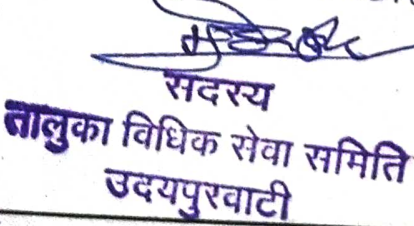 सदस्य
तालुका विधिक सेवा समिति
उदयपुरवाटी